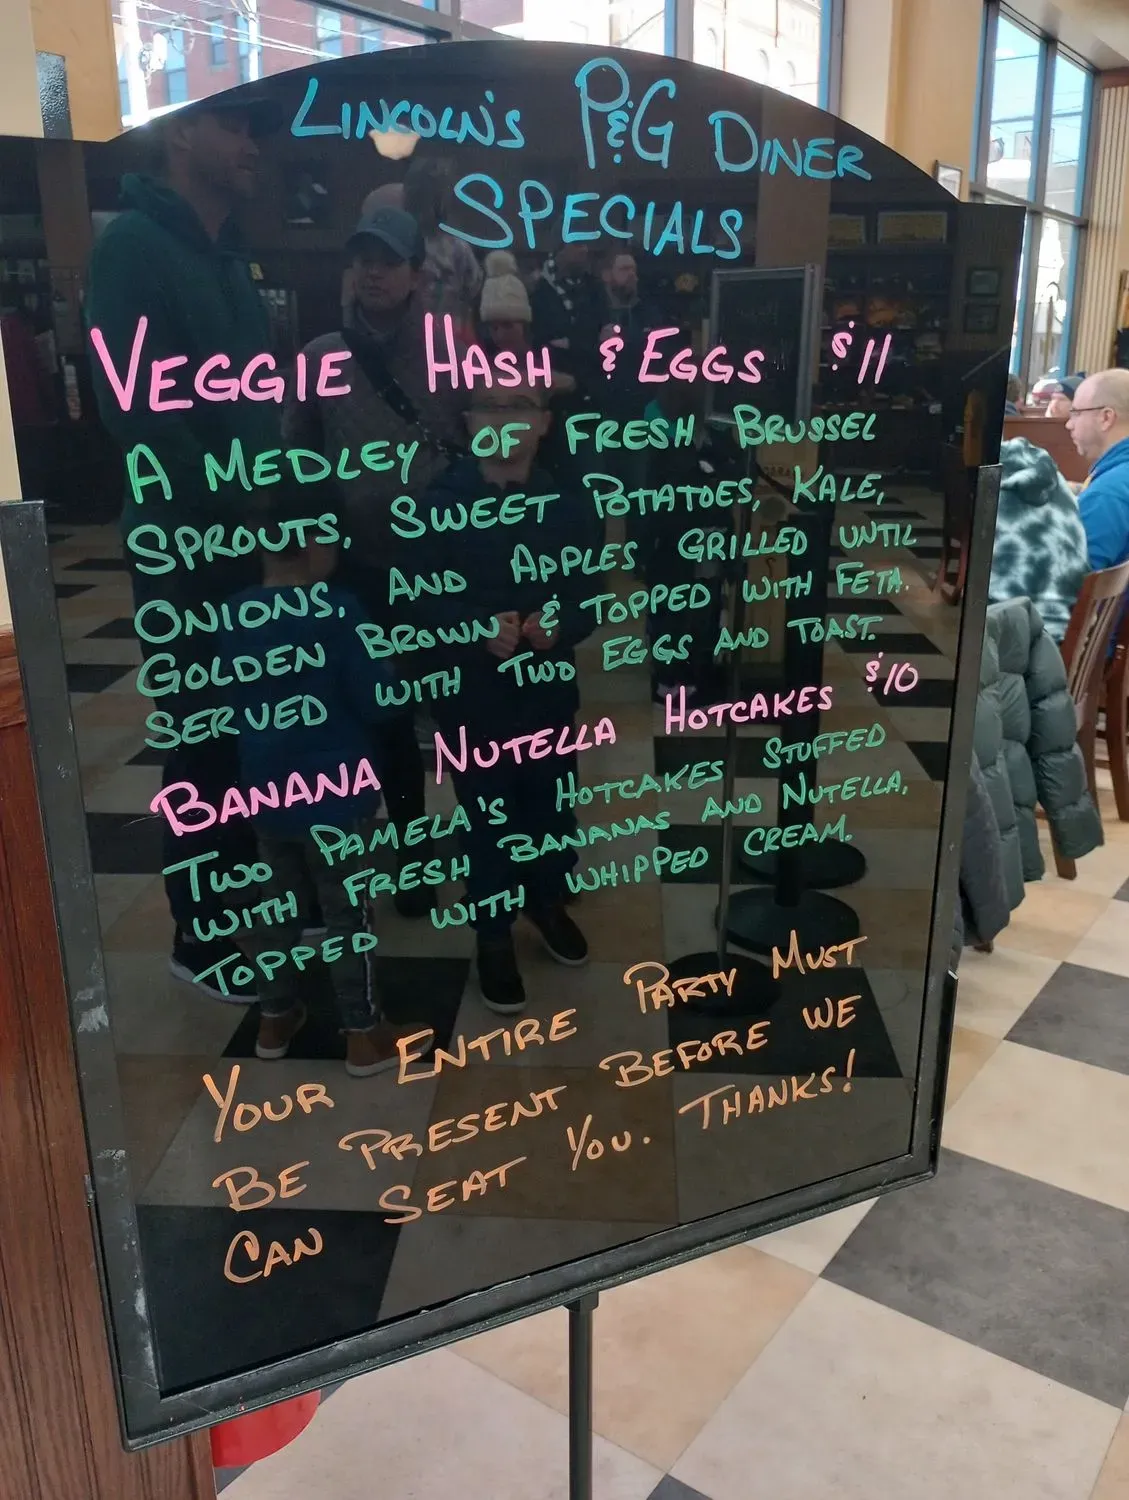 LINCOLN'S P&G DINER
SPECIALS
VEGGIE HASH & EGGS $11
A MEDLEY OF FRESH BRUSSEL
SPROUTS, SWEET POTATOES, KALE,
ONIONS, AND APPLES GRILLED UNTIL
GOLDEN BROWN & TOPPED WITH FETA.
SERVED WITH TWO EGGS AND TOAST.
BANANA NUTELLA HOTCAKES $10
TWO PAMELA'S HOTCAKES STUFFED
WITH FRESH BANANAS AND NUTELLA,
TOPPED WITH WHIPPED CREAM.
YOUR ENTIRE PARTY MUST
BE PRESENT BEFORE WE
CAN SEAT YOU. THANKS!